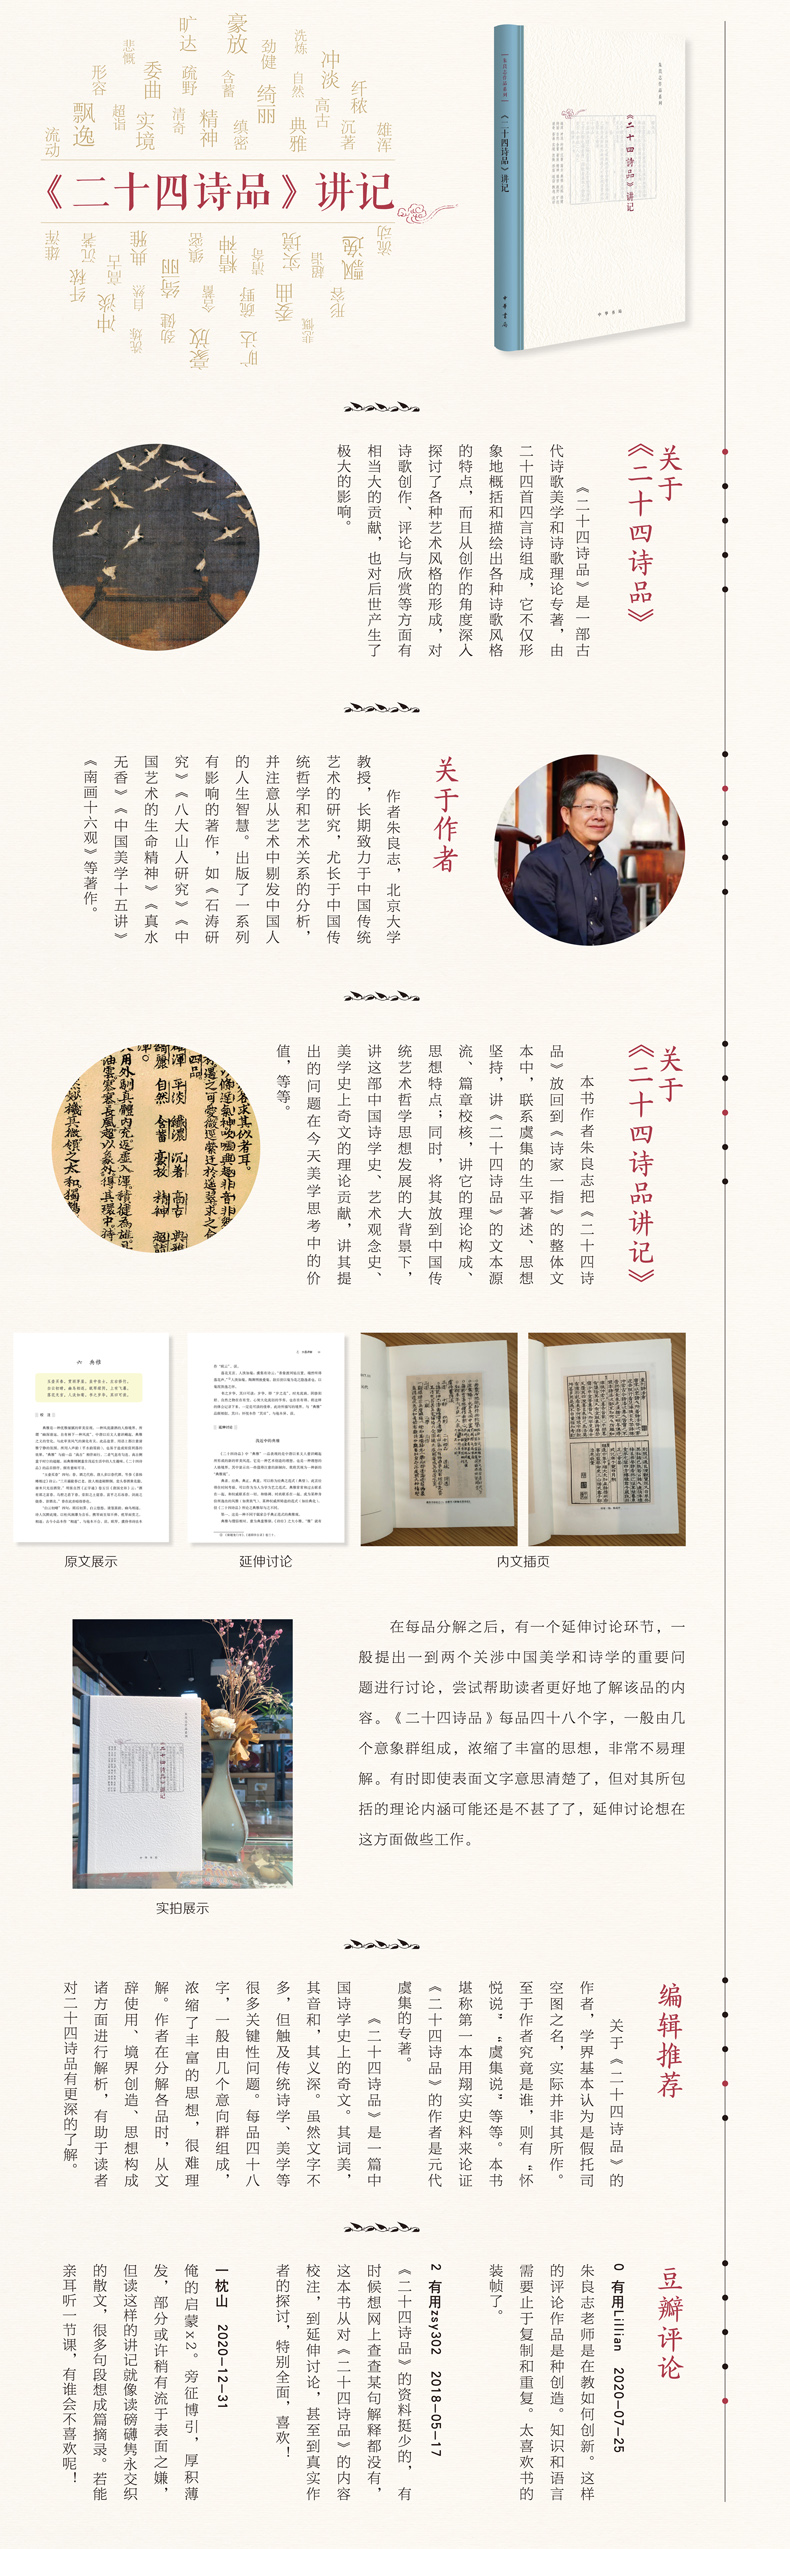 悲慨
旷达
豪放
劲健
洗炼
冲淡
形容
委曲
疏野
含蓄
绮丽
自然
高古
纤秾
飘逸
超诣
实境
清奇
精神
缜密
典雅
沉著
雄浑
流动
《二十四诗品》讲记
雄浑
沉著
典雅
缜密
精神
清奇
实境
超诣
飘逸
流动
纤秾
高古
自然
绮丽
含蓄
疏野
委曲
形容
冲淡
洗炼
劲健
豪放
旷达
悲慨
朱良志作品系列
《二十四诗品》讲记
中华书局
朱良志作品系列
《二十四诗品》讲记
中华书局
关于
《二十四诗品》
《二十四诗品》是一部古
代诗歌美学和诗歌理论专著，由
二十四首四言诗组成，它不仅形
象地概括和描绘出各种诗歌风格
的特点，而且从创作的角度深入
探讨了各种艺术风格的形成，对
诗歌创作、评论与欣赏等方面有
相当大的贡献，也对后世产生了
极大的影响。
关于作者
作者朱良志，北京大学
教授，长期致力于中国传统
艺术的研究，尤长于中国传
统哲学和艺术关系的分析，
并注意从艺术中剔发中国人
的人生智慧。出版了一系列
有影响的著作，如《石涛研
究》《八大山人研究》《中
国艺术的生命精神》《真水
无香》《中国美学十五讲》
《南画十六观》等著作。
关于
《二十四诗品讲记》
本书作者朱良志把《二十四诗
品》放回到《诗家一指》的整体文
本中，联系虞集的生平著述、思想
坚持，讲《二十四诗品》的文本源
流、篇章校核，讲它的理论构成、
思想特点；同时，将其放到中国传
统艺术哲学思想发展的大背景下，
讲这部中国诗学史、艺术观念史、
美学史上奇文的理论贡献，讲其提
出的问题在今天美学思考中的价
值，等等。
六 典雅
原文展示
延伸讨论
内文插页
在每品分解之后，有一个延伸讨论环节，一
般提出一到两个关涉中国美学和诗学的重要问
题进行讨论，尝试帮助读者更好地了解该品的内
容。《二十四诗品》每品四十八个字，一般由几
个意象群组成，浓缩了丰富的思想，非常不易理
解。有时即使表面文字意思清楚了，但对其所包
括的理论内涵可能还是不甚了了，延伸讨论想在
这方面做些工作。
《二十四诗品》讲记
实拍展示
编辑推荐
关于《二十四诗品》的
作者，学界基本认为是假托司
空图之名，实际并非其所作。
至于作者究竟是谁，则有“怀
悦说”“虞集说”等等。本书
堪称第一本用翔实史料来论证
《二十四诗品》的作者是元代
虞集的专著。
《二十四诗品》是一篇中
国诗学史上的奇文。其词美，
其音和，其义深。虽然文字不
多，但触及传统诗学、美学等
很多关键性问题。每品四十八
字，一般由几个意向群组成，
浓缩了丰富的思想，很难理
解。作者在分解各品时，从文
辞使用、境界创造、思想构成
诸方面进行解析，有助于读者
对二十四诗品有更深的了解。
豆瓣评论
0 有用Lillian 2020-07-25
朱良志老师是在教如何创新。这样
的评论作品是种创造。知识和语言
需要止于复制和重复。太喜欢书的
装帧了。
2 有用zsy302 2018-05-17
《二十四诗品》的资料挺少的，有
时候想网上查查某句解释都没有，
这本书从对《二十四诗品》的内容
校注，到延伸讨论，甚至到真实作
者的探讨，特别全面，喜欢！
一枕山 2020-12-31
俺的启蒙x2。旁征博引，厚积薄
发，部分或许稍有流于表面之嫌，
但读这样的讲记就像读磅礴隽永交织
的散文，很多句段想成篇摘录。若能
亲耳听一节课，有谁会不喜欢呢！